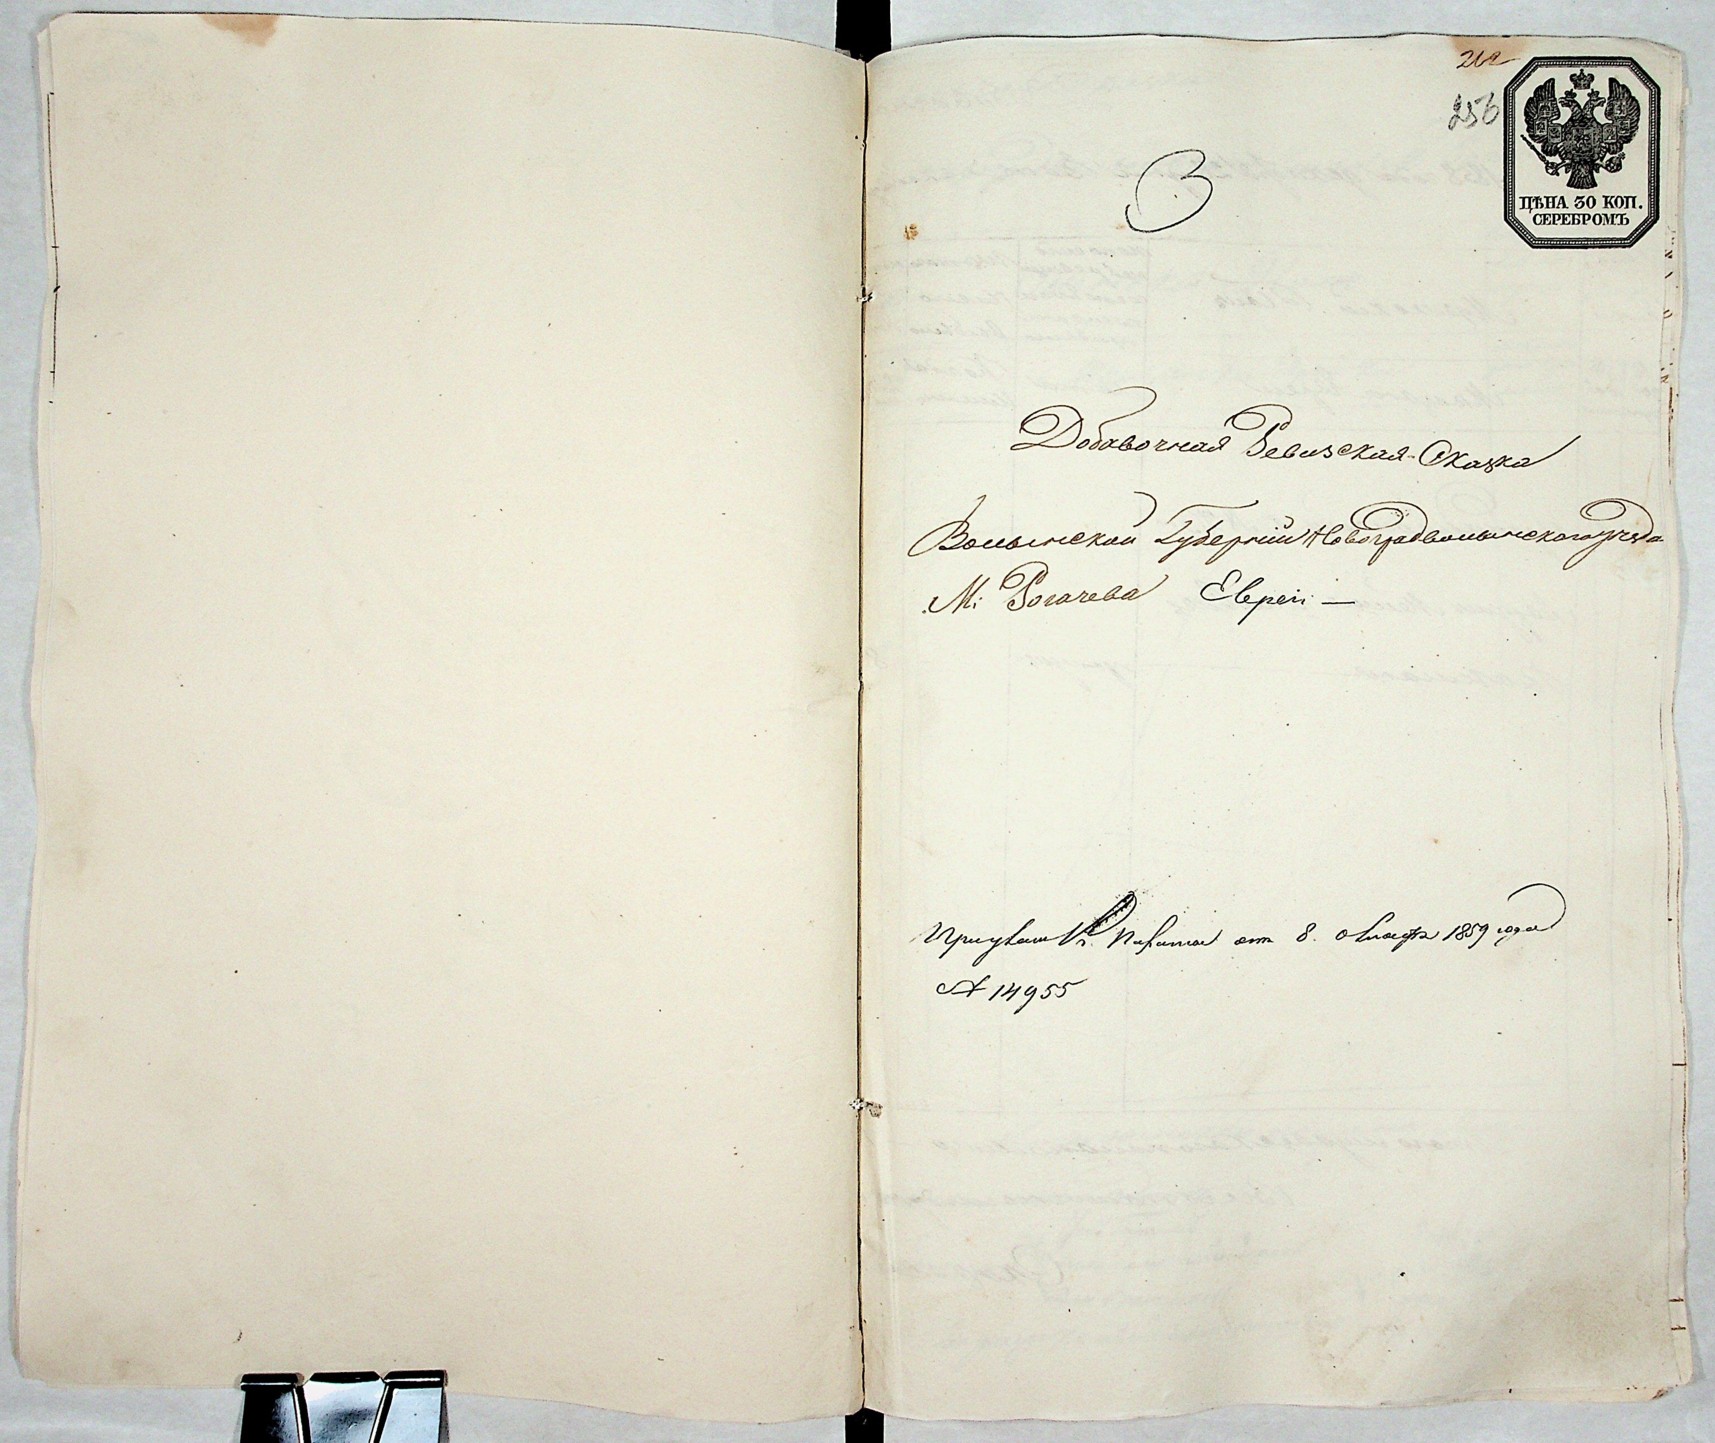 253
ЦѢНА 30 КОП.
СЕРЕБРОМЪ
3
Добавочная Ревизская Сказка
Волынской Губерніи Новоградволынскаго уѣзда
М: Рогачева Еврей —
При указ К. Палаты отъ 8 октября 1859 года
№ 14955